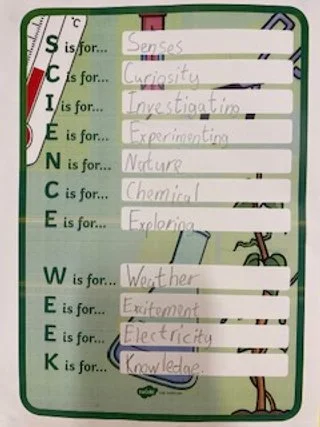 S is for... Senses
C is for... Curiosity
I is for... Investigating
E is for... Experimenting
N is for... Nature
C is for... Chemical
E is for... Exploring
W is for... Weather
E is for... Excitement
E is for... Electricity
K is for... Knowledge.
twinkl